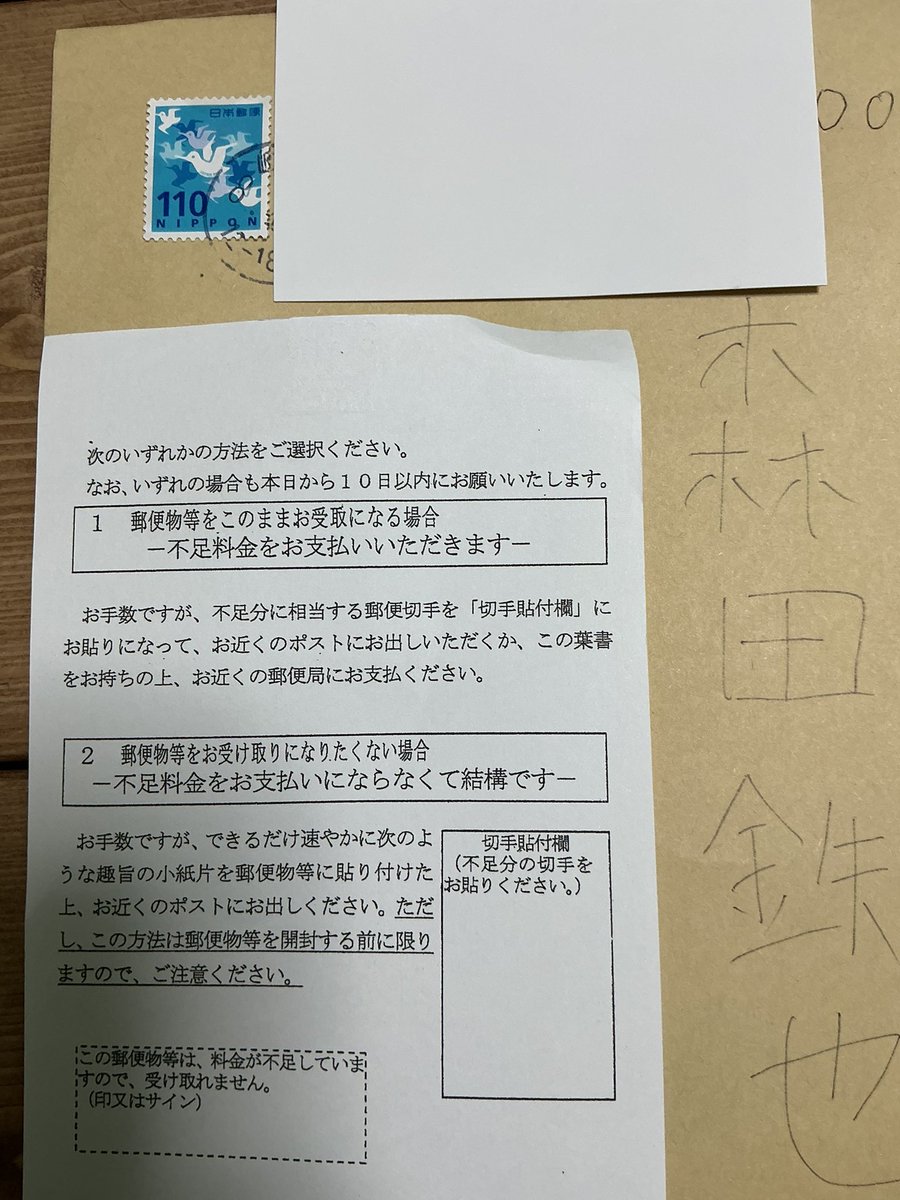 日本郵便
110
NIPPON
00
森田鉄也
次のいずれかの方法をご選択ください。
なお、いずれの場合も本日から10日以内にお願いいたします。
1 郵便物等をこのままお受取になる場合
－不足料金をお支払いいただきます－
お手数ですが、不足分に相当する郵便切手を「切手貼付欄」に
お貼りになって、お近くのポストにお出しいただくか、この葉書
をお持ちの上、お近くの郵便局にお支払ください。
2 郵便物等をお受け取りになりたくない場合
－不足料金をお支払いにならなくて結構です－
お手数ですが、できるだけ速やかに次のよ
うな趣旨の小紙片を郵便物等に貼り付けた
上、お近くのポストにお出しください。ただ
し、この方法は郵便物等を開封する前に限り
ますので、ご注意ください。
切手貼付欄
（不足分の切手を
お貼りください。）
この郵便物等は、料金が不足していま
すので、受け取れません。
（印又はサイン）